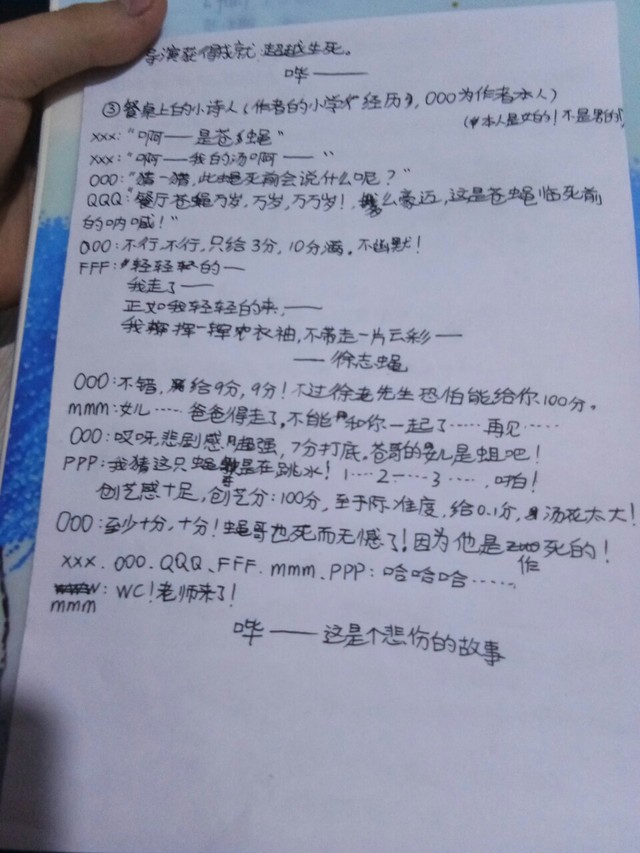 导演获得成就:超越生死。
哗——
③餐桌上的小诗人(作者的小学"经历",OOO为作者本人)
(本人是女的!不是男的!)
xxx:"啊——是苍蝇"
xxx:"啊——我的汤啊——"
OOO:"猜一猜,此蝇死前会说什么呢?"
QQQ:"餐厅苍蝇万岁,万岁,万万岁!,多么豪迈,这是苍蝇临死前
的呐喊!"
OOO:不行,不行,只给3分,10分满。不幽默!
FFF:轻轻的—
我走了——
正如我轻轻的来,——
我挥一挥衣袖,不带走一片云彩—
——徐志蝇
OOO:不错,给9分,9分!不过徐老先生恐怕能给你100分。
mmm:女儿……爸爸得走了,不能和你一起了……再见……
OOO:哎呀,悲剧感超强,7分打底,苍哥的女儿是蛆吧!
PPP:我猜这只蝇是在跳水!1……2……3……啪!
创艺感十足,创艺分:100分,至于标准度,给0.1分,汤花太大!
OOO:至少十分,十分!蝇哥也死而无憾了!因为他是作死的!
xxx.OOO.QQQ、FFF.mmm、PPP:哈哈哈……
mmm:WC!老师来了!
哗——这是个悲伤的故事